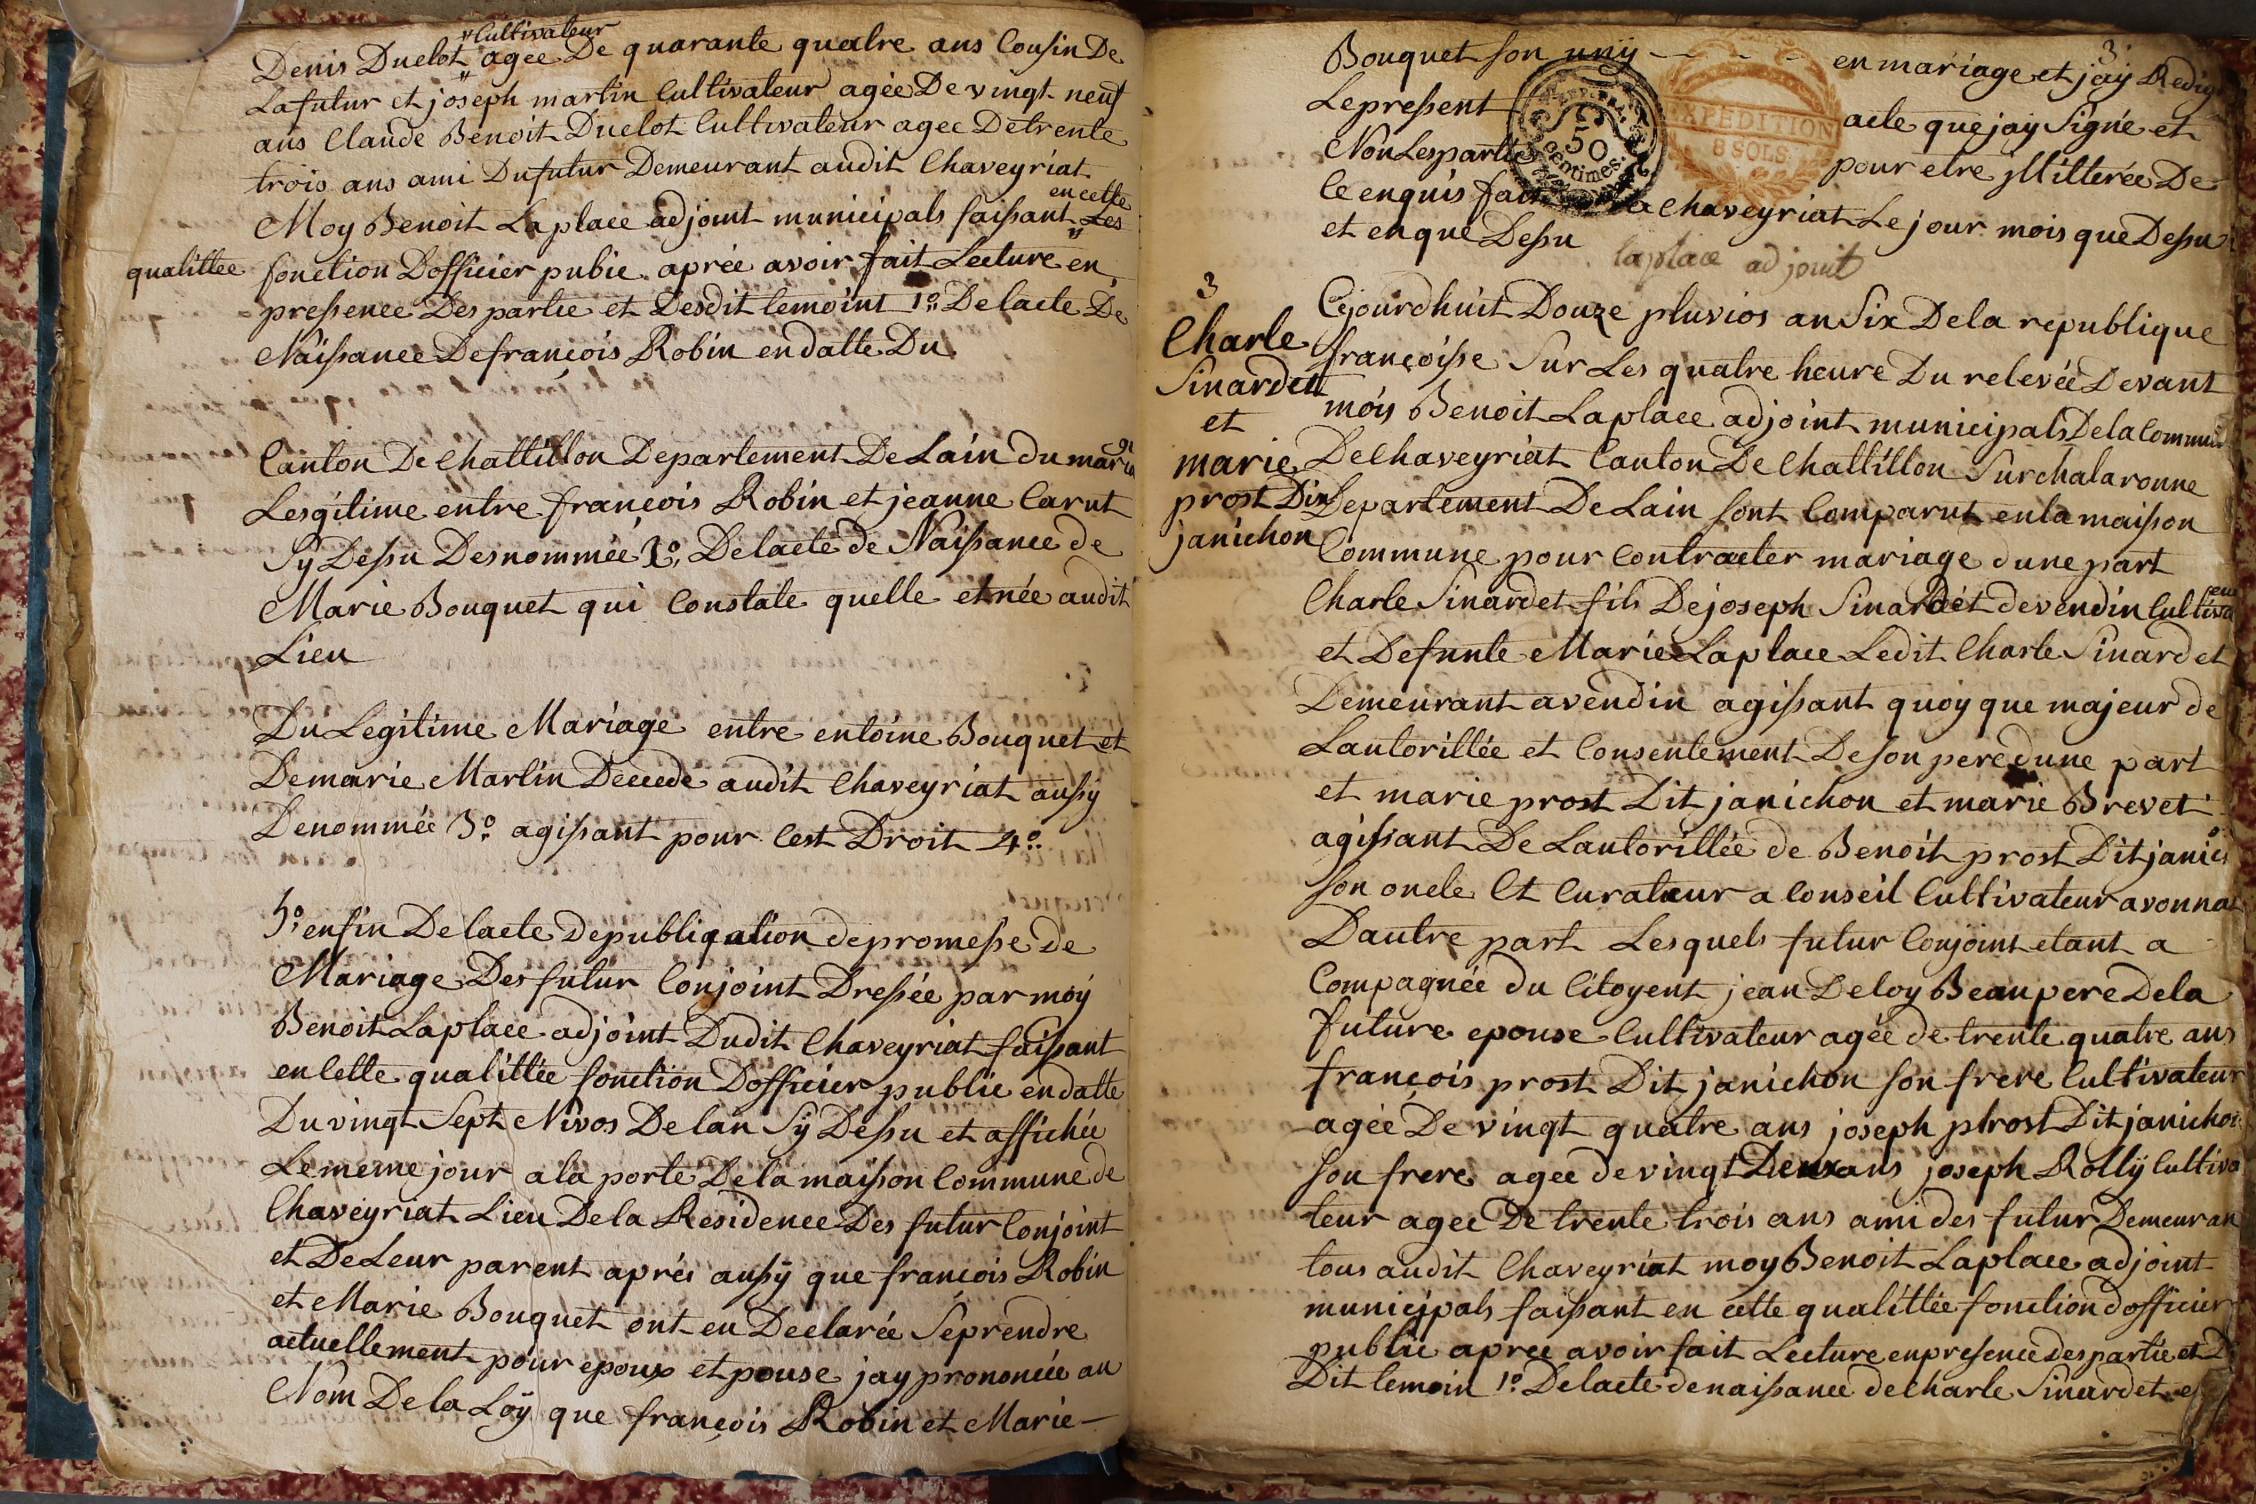 "Cultivateur
Denis Duclot " agee De quarante quatre ans Cousin De
Lafutur et joseph martin Cultivateur agée De vingt neuf
ans Claude Benoit Duclot Cultivateur agee Detrente
trois ans ami Dufutur Demeurant audit Chaveyriat
en cette
Moy Benoit Laplace adjoint municipals faisant " Les
qualittee
fonction Dofficier pubic aprée avoir fait Lecture en
presence Des partie et Desdit temoint 1o Delacte De
Naissance Defrançois Robin endatte Du
Canton De Chattillon Departement De Lain du maria
Lesgitime entre françois Robin et jeanne Carut
Sy Dessu Desnommée 2o Delacte de Naissance de
Marie Bouquet qui Constate quelle et née audit
Lieu
Du Legitime Mariage entre entoine Bouquet et
Demarie Martin Decede audit Chaveyriat aussy
Denommée 3o agissant pour Cest Droit 4o
5o enfin Delacte depubliqation depromesse de
Mariage Des futur Conjoint Dressée par moy
Benoit Laplace adjoint Dudit Chaveyriat faisant
en Cette qualittée fonction Dofficier public endatte
Du vingt Sept Nivos De lan Sy Dessu et affichée
Le meme jour a la porte De la maison Commune de
Chaveyriat Lieu De la Residence Des futur Conjoint
et De Leur parent aprés aussy que françois Robin
et Marie Bouquet ont eu Declarée Seprendre
actuellement pour epoux et pouse jay prononcée au
Nom De la Loy que françois Robin et Marie
3
Bouquet son uny en mariage et jay Redigé
Lepresent acte que jay Signé et
50
centimes.
EXPEDITION
8 SOLS
Non Lespartie pour etre jllitterée De
Ce enquis fait a Chaveyriat Le jour mois que Dessu
et en que Dessu
laplace adjoint
3
Charle
Sinardett
et
marie
prost Dit
janichon
Cejourdhuit Douze pluvios an Six De la republique
françoisse Sur Les quatre heure Du relevée Devant
moy Benoit Laplace adjoint municipals De la Commun
De Chaveyriat Canton De Chattillon Surchalaronne
Departement De Lain sont Comparut en la maison
Commune pour Contracter mariage dune part
Charle Sinardet fils De joseph Sinardet de vendin Cultiva
et Defunte Marie Laplace Ledit Charle Sinardet
Demeurant a vendin agissant quoy que majeur de
Lautorittée et Consentement De son pere dune part
et marie prost Dit janichon et marie Brevet
agissant De Lautorittée de Benoit prost Dit janic
son oncle Et Curateur a Conseil Cultivateur a vonna
Dautre part Lesquels futur Conjoint etant a
Compagnée du Citoyent jean Deloy Beaupere De la
future epouse Cultivateur agée de trente quatre ans
françois prost Dit janichon son frere Cultivateur
agée De vingt quatre ans joseph prost Dit janichon
son frere agee de vingt Deux ans joseph Rolly Cultiva
teur agee De trente trois ans ami des futur Demeuran
tous audit Chaveyriat moy Benoit Laplace adjoint
municipals faisant en cette qualittée fonction dofficier
public apree avoir fait Lecture en presence des partie et D
Dit temoin 1o Delacte de naissance de Charle Sinardet